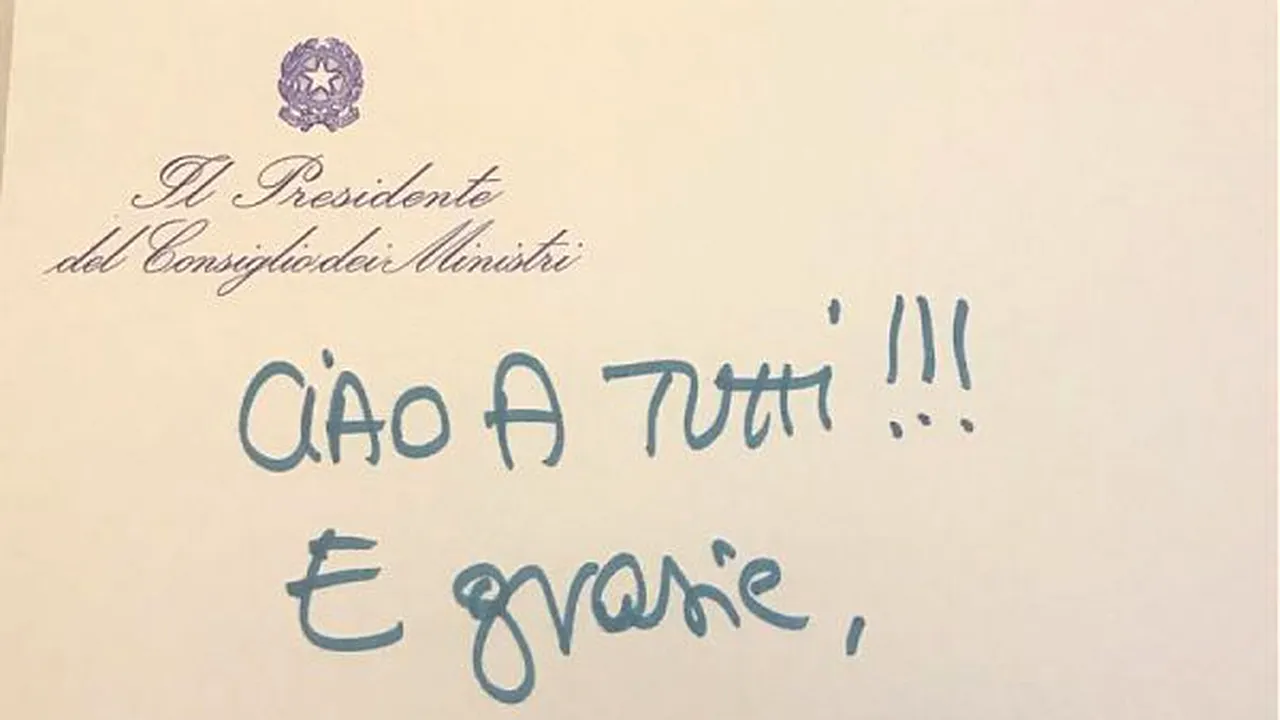 Il Presidente
del Consiglio dei Ministri
CIAO A TUTTI !!!
E grazie,